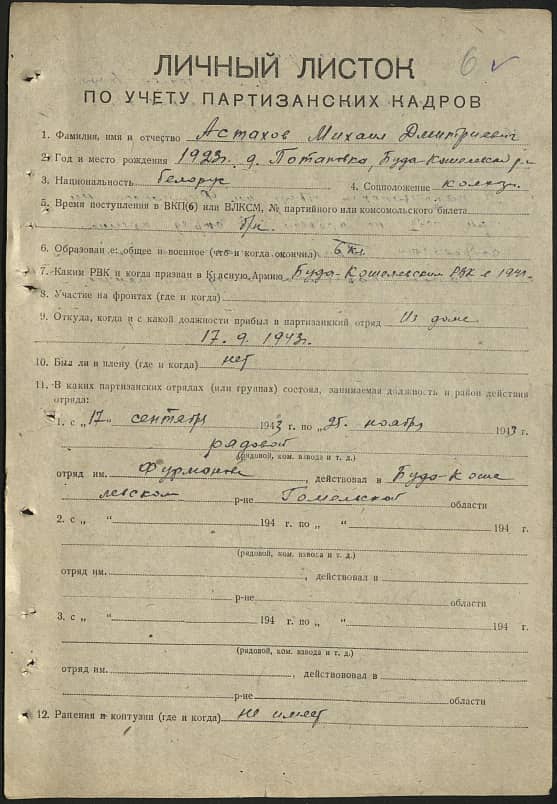 6
ЛИЧНЫЙ ЛИСТОК
ПО УЧЕТУ ПАРТИЗАНСКИХ КАДРОВ
1. Фамилия, имя и отчество Астахов Михаил Дмитриевич
2. Год и место рождения 1923г. д. Потаповка, Буда-Кошельско р-н
3. Национальность белорус 4. Соцположение колхоз.
5. Время поступления в ВКП(б) или ВЛКСМ, № партийного или комсомольского билета
б/п
6. Образован е: общее и военное (что и когда окончил) 6 кл.
7. Каким РВК и когда призван в Красную Армию Буда-Кошелевским РВК в 1941г.
8. Участие на фронтах (где и когда)
9. Откуда, когда и с какой должности прибыл в партизанский отряд Из дома
17. 9. 1943г.
10. Был ли в плену (где и когда) нет
11. В каких партизанских отрядах (или группах) состоял, занимаемая должность и район действия
отряда:
1. с „17“ сентября 1943 г. по „25“ ноября 1943 г.
рядовой
(рядовой, ком. взвода и т. д.)
отряд им. Фурманова, действовал в Буда-Коше
левском р-не Гомельской области
2. с „ “ 194 г. по „ “ 194 г.
(рядовой, ком. взвода и т. д.)
отряд им. , действовал в
р-не области
3. с „ “ 194 г. по „ “ 194 г.
(рядовой, ком. взвода и т. д.)
отряд им. , действоовал в
р-не области
12. Ранения и контузии (где и когда) не имеет